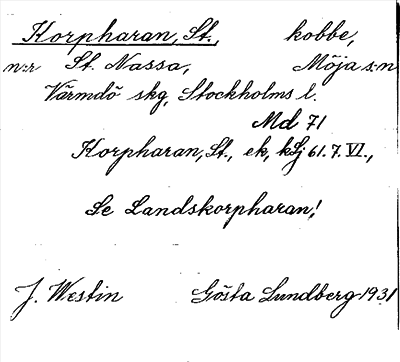 Korpharan, St., kobbe,
n:r St. Nassa, Möja s:n
Värmdö skg, Stockholms l.
Md 71
Korpharan, St., ek, kLj 61.7.VI.,
Se Landskorpharan!
J. Westin Gösta Lundberg 1931